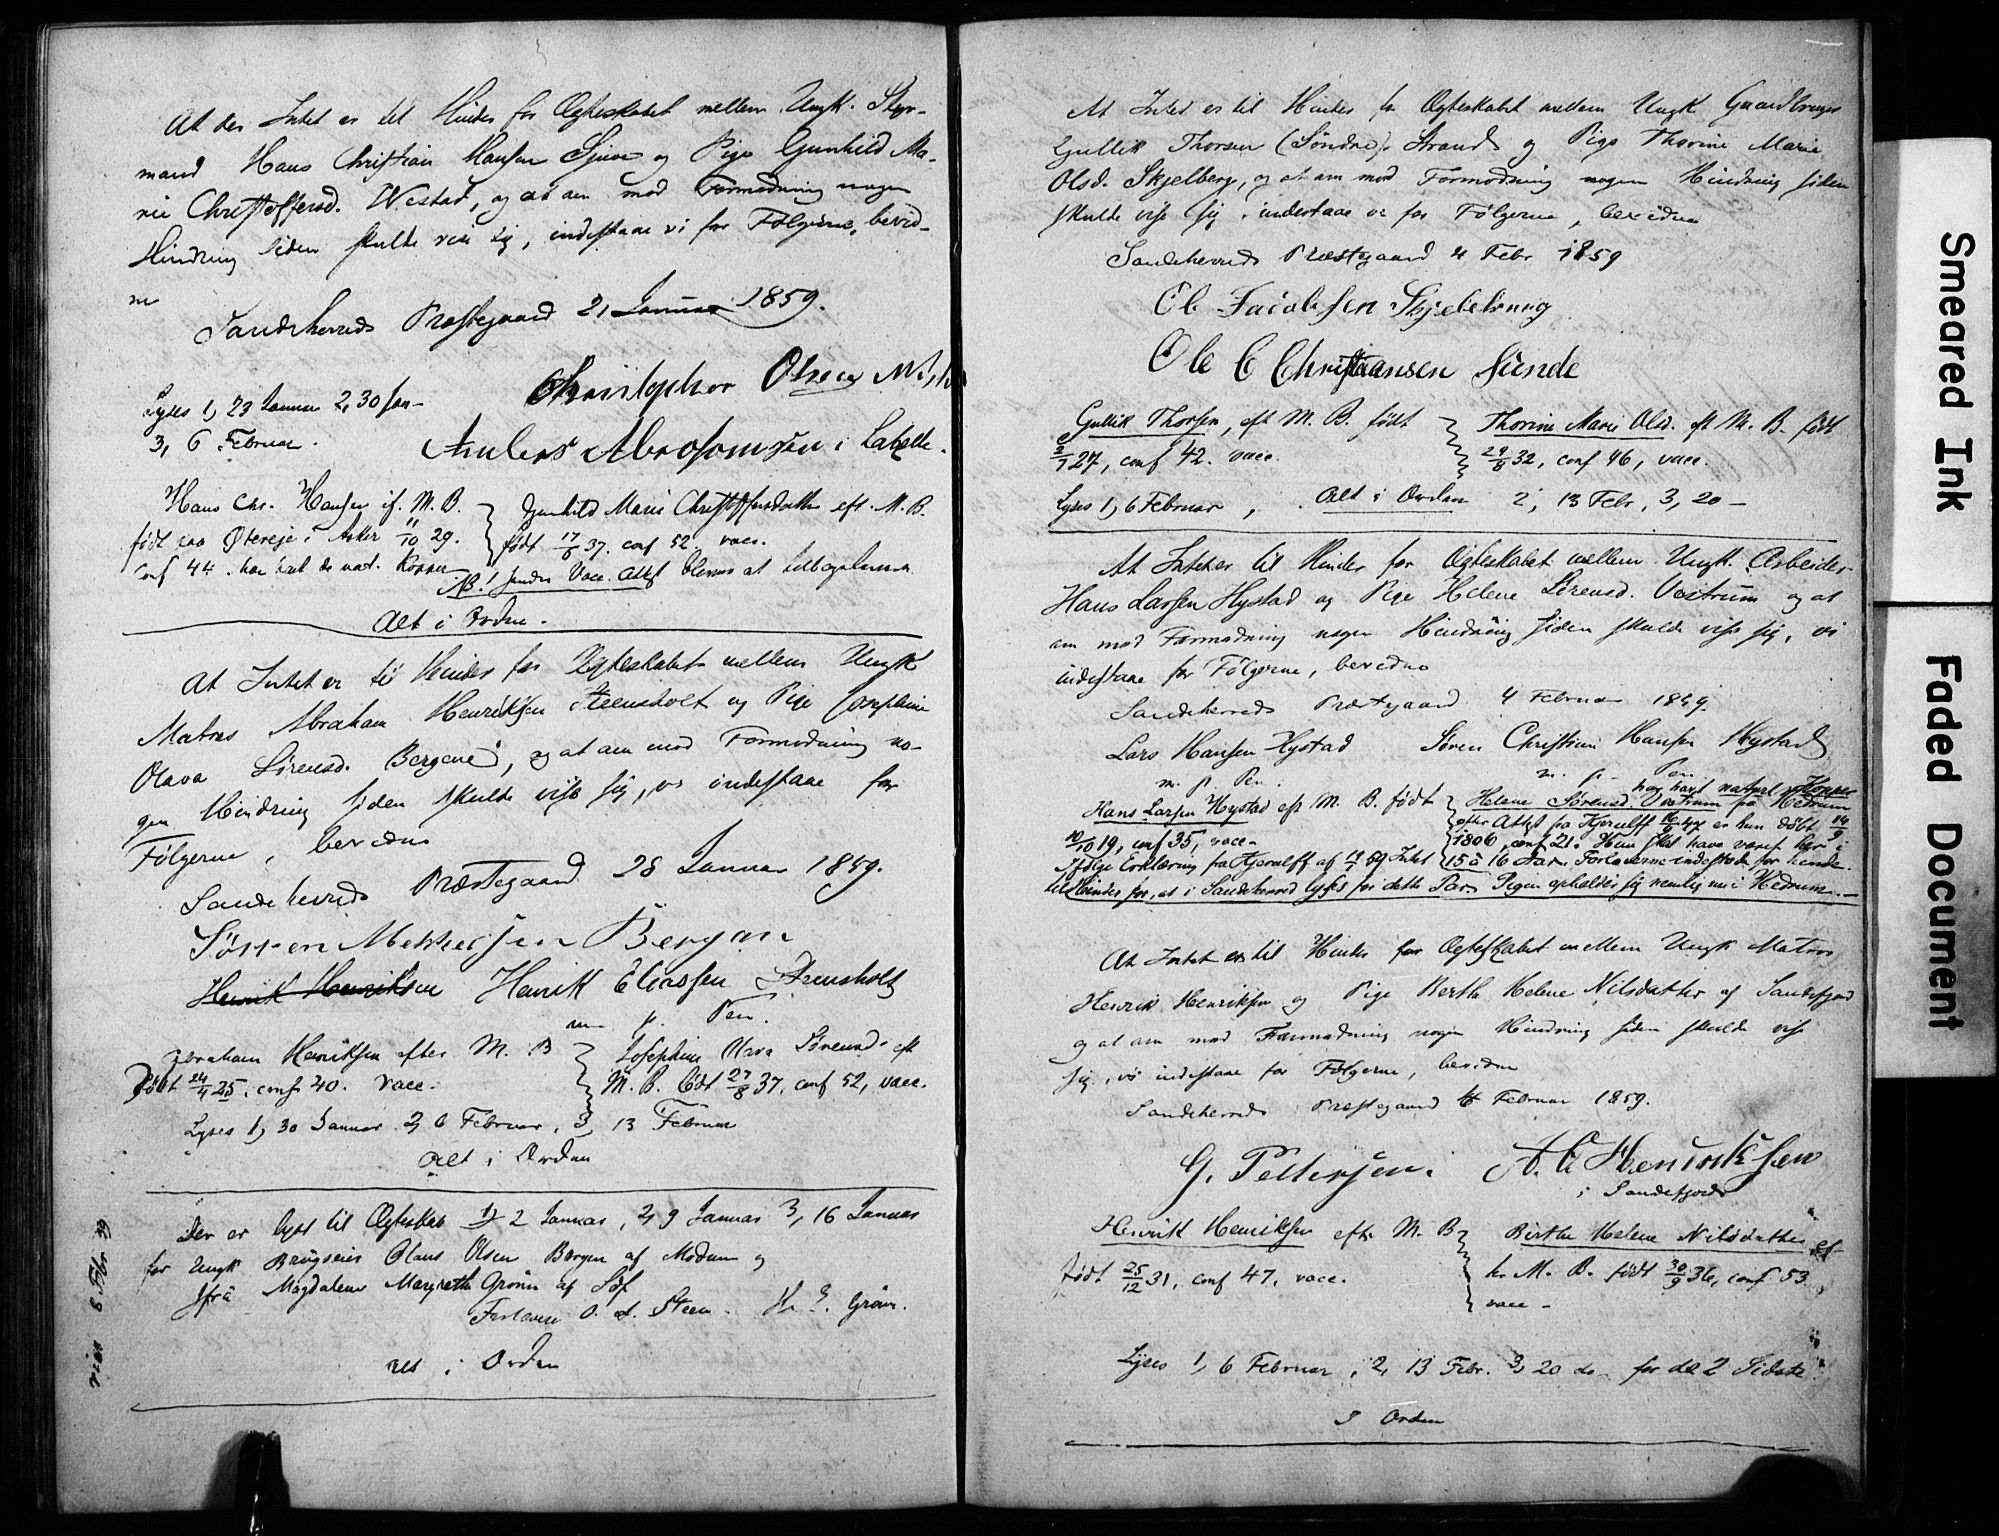 At der Intet er til Hinder for Ægteskabet mellem Ungk. Styr-
mand Hans Christian Hansen og Pige Gunhild Ma-
rie Christoffersd. Westad, og at om mod Formodning nogen
Hindring siden skulde vise sig, indestaae vi for Følgerne, bevid-
ne
Sandeherreds Præstegaard 21 Januar 1859.
Christopher Olsen
Lyses 1, 23 Januar 2, 30 Jan-
3, 6 Februar.
Anders Abrahamsen i
Hans Chr. Hansen if. M. B.
født paa Østerøe i Asker 11/10 29.
conf 44. har havt de nat. Kopper
Gunhild Marie Christoffersdatter eft. M. B.
født 17/6 37. conf 52 vacc.
NB! hendes Vacc. Attest
Alt i Orden.
At Intet er til Hinder for Ægteskabet mellem Ungk
Matros Abraham Henriksen Steensholt og Pige Josephine
Olava Sørensd. Bergene, og at om mod Formodning no-
gen Hindring siden skulde vise sig, vi indestaae for
Følgerne, bevidne
Sandeherreds Præstegaard 28 Januar 1859.
Sørren Bergan
Henrik Henriksen Henrik Eliassen Steensholt
m. p. Pen.
Abraham Henriksen efter M. B
født 24/4 25, conf 40. vacc.
Josephine Olava Sørensd. eft
M. B. født 27/8 37, conf 52, vacc.
Lyses 1, 30 Januar 2, 6 Februar, 3, 13 Februar
Alt i Orden
Der er lyst til Ægteskab 1, 2 Januar, 2, 9 Januar 3, 16 Januar
for Ungk Brugseier Olaus Olsen Bergan af Modum og
Jfru Magdalene Margrethe Grønn af
Forlovere O. A. Steen. H. E. Grønn.
Alt i Orden
8 Febr 59
At Intet er til Hinder for Ægteskabet mellem Ungk Gaardbruger
Gullik Thorsen (Søndre) Strand og Pige Thorine Marie
Olsd. Skjelberg, og at om mod Formodning nogen Hindring siden
skulde vise sig, indestaae vi for Følgerne, bevidne
Sandeherreds Præstegaard 4 Febr 1859
Ole Jacobsen Skjelbberg
Ole C Christiansen Sunde
Gullik Thorsen, eft M. B. født
27, conf 42. vacc.
Thorine Marie Olsd. eft M. B. født
29/8 32, conf 46, vacc.
Lyses 1, 6 Februar, Alt i Orden 2, 13 Febr, 3, 20 –
At Intet er til Hinder for Ægteskabet mellem Ungk. Arbeider
Hans Larsen Hystad og Pige Helene Sørensd. Vestrum og at
om mod Formodning nogen Hindring siden skulde vise sig, vi
indestaae for Følgerne, bevidne
Sandeherreds Præstegaard 4 Februar 1859.
Lars Hansen Hystad Søren Christian Hansen Hystad
m. p. Pen. m. p. Pen
har havt naturl. Kopper
Hans Larsen Hystad eft M. B. født
10/10 19, conf 35, vacc.
Helene Sørensd. Vestrum fra Hedrum
efter Attest fra Hjerulff 16/9 47 er hun døbt 14/9
1806, conf 21. Hun skal have været her i
15 à 16 Aar. Forloverne indestode for hende.
Ifølge Erklæring fra Hjerulff af 59 Intet
til Hinder for, at i Sandeherred lyses for dette Par. Pigen opholder sig nemlig nu i Hedrum.
At Intet er til Hinder for Ægteskabet mellem Ungk Matros
Henrik Henriksen og Pige Berthe Helene Nilsdatter af Sandefjord
og at om mod Formodning nogen Hindring siden skulde vise
sig, vi indestaae for Følgerne, bevidne
Sandeherreds Præstegaard 4 Februar 1859.
G. Pettersen. A. C Henriksen
i Sandefjord
Henrik Henriksen efter M. B
født 25/12 31, conf 47, vacc.
Birthe Helene Nilsdatter ef-
ter M. B. født 30/9 36, conf 53.
vacc –
Lyses 1, 6 Februar, 2, 13 Febr. 3, 20 do. for de 2 Sidste
I Orden
Smeared Ink
Faded Document